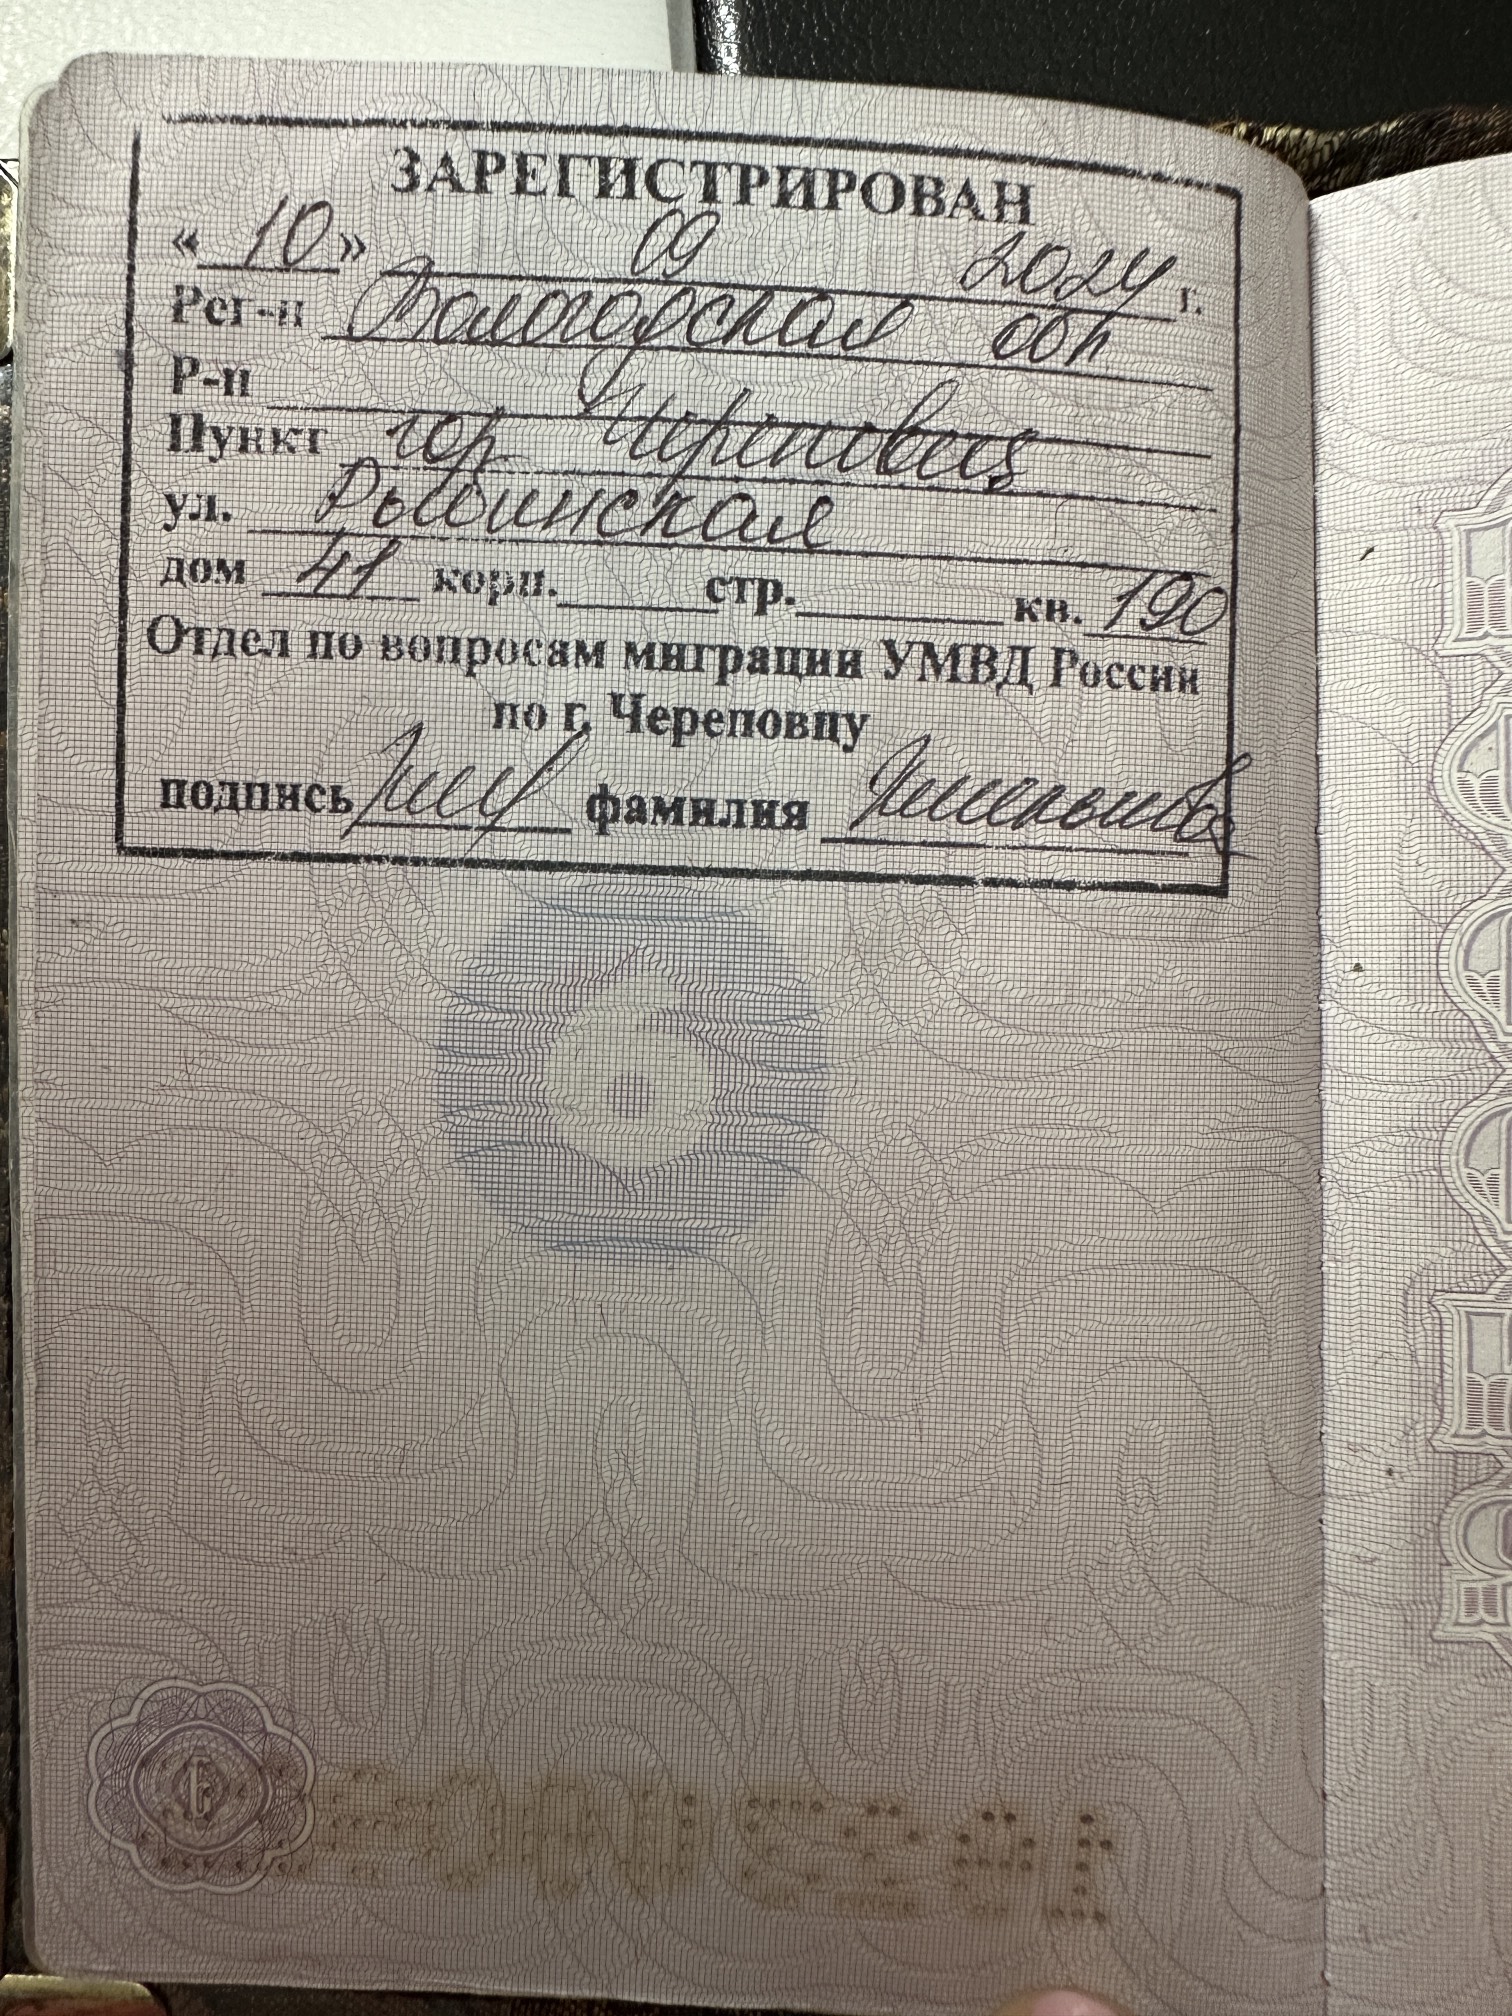 ЗАРЕГИСТРИРОВАН
« 10 » 09 2024 г.
Рег-н Вологодская обл
Р-н
Пункт гор Череповец
ул. Рыбинская
дом 41 корп. стр. кв. 190
Отдел по вопросам миграции УМВД России
по г. Череповцу
подпись фамилия